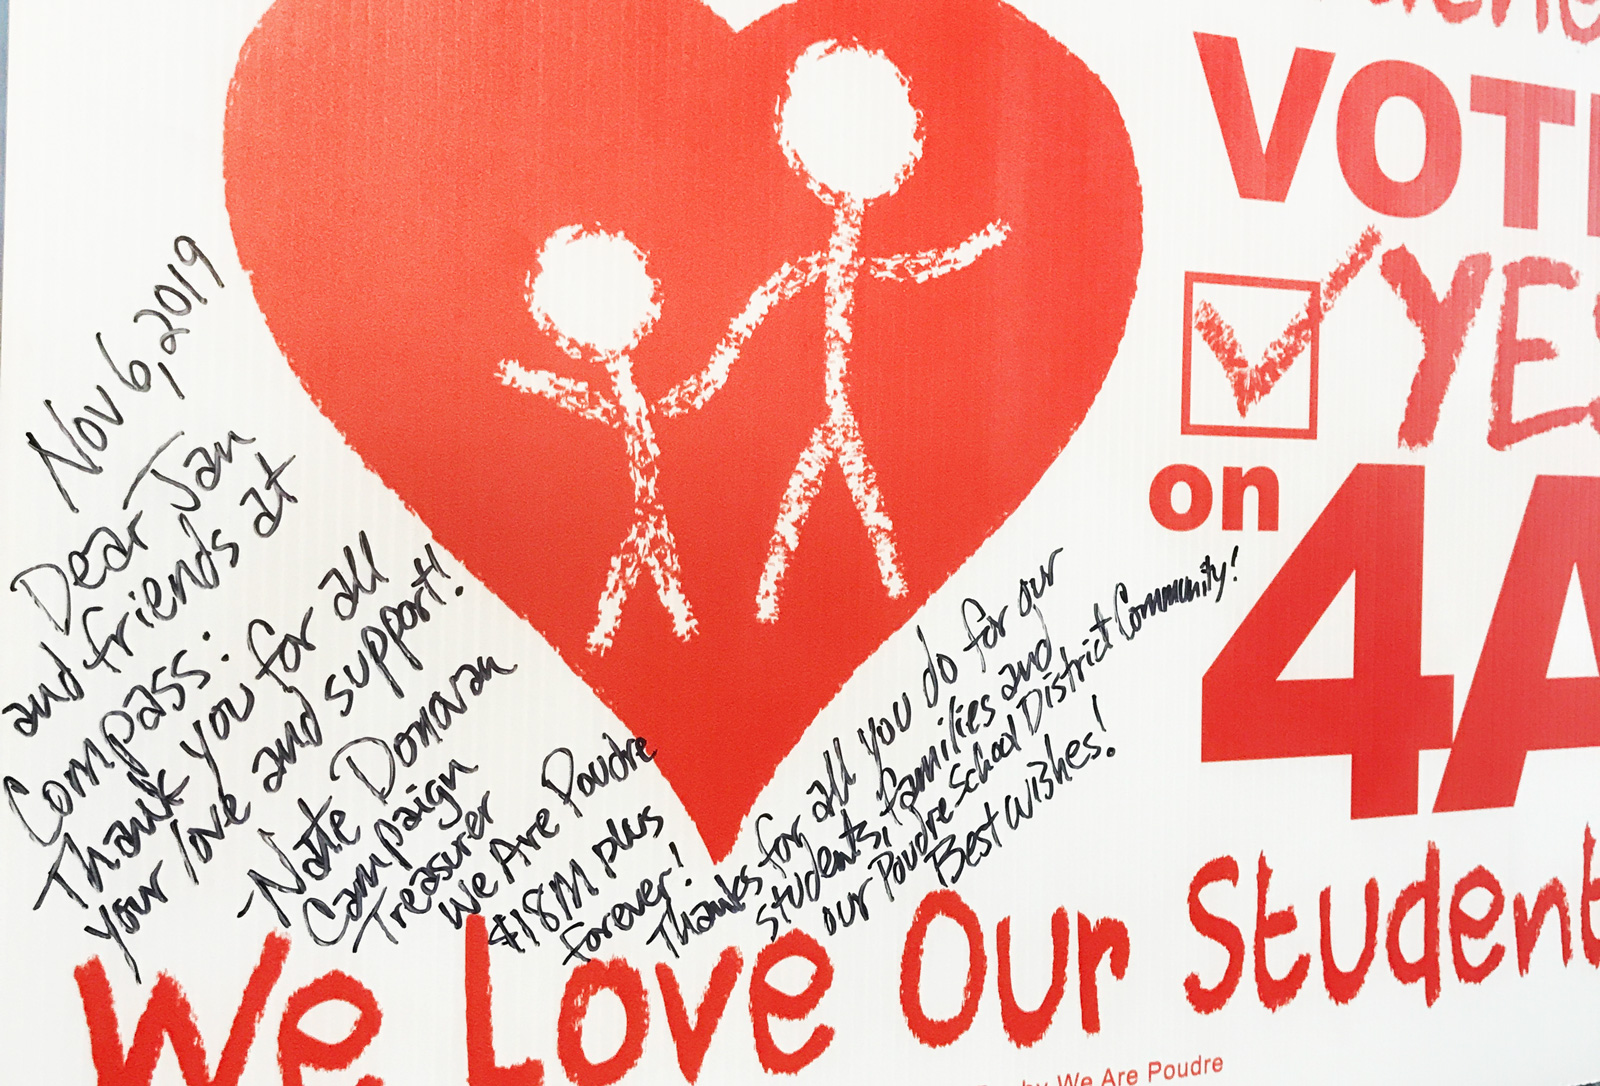 VOT
YES
on
4A
Nov 6, 2019
Dear Jan
and friends at
Compass:
Thank you for all
your love and support!
-Nate Donovan
Campaign
Treasurer
We Are Poudre
$18M plus
forever!
Thanks for all you do for our
students, families and
our Poudre School District Community!
Best wishes!
We Love Our Student
by We Are Poudre